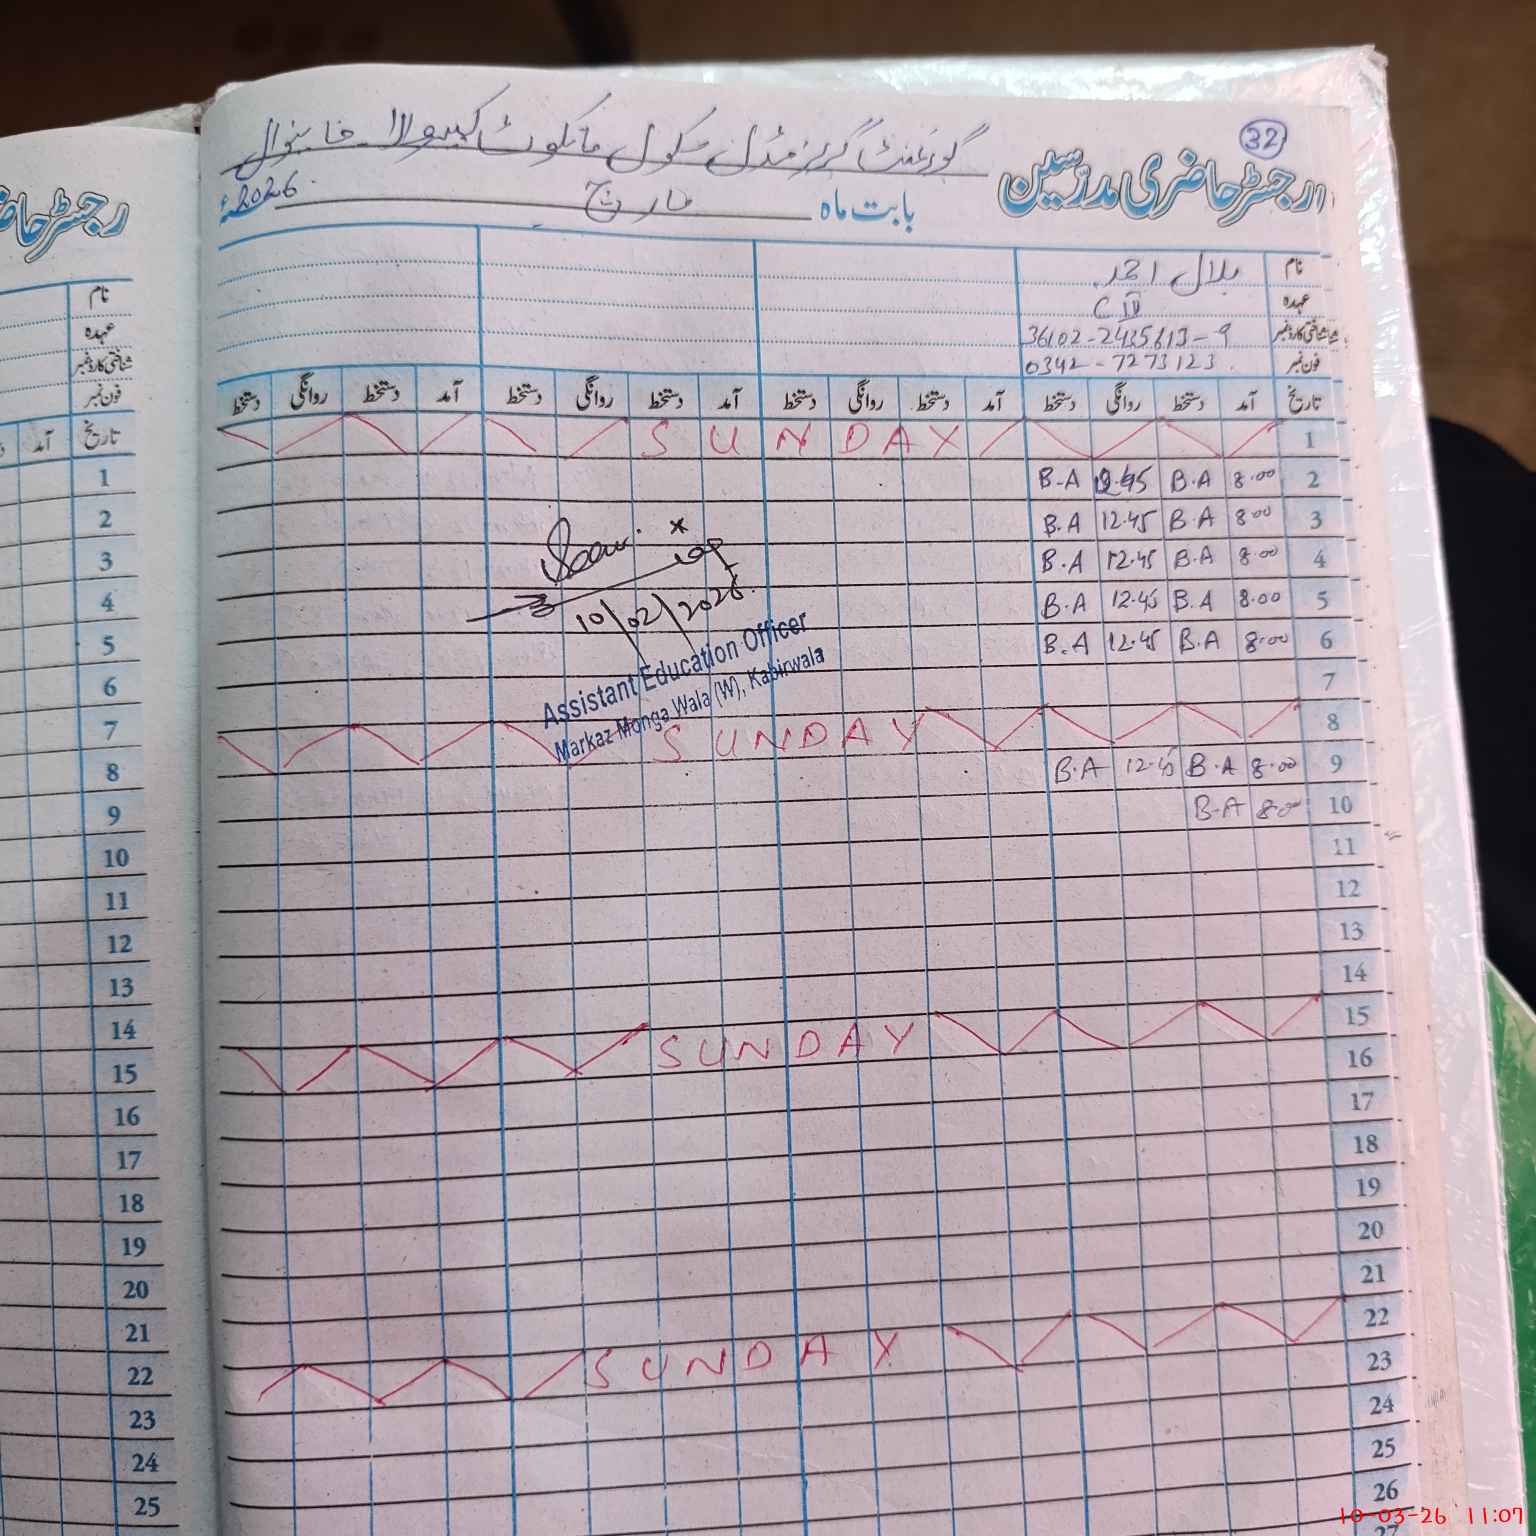 32
رجسٹر حاضری مدرسین
گورنمنٹ گرلز مڈل سکول مانکوٹ کبیروالا خانیوال
بابت ماہ مارچ 2026ء
نام بلال احمد
عہدہ C IV
شناختی کارڈ نمبر 36102-2435613-9
فون نمبر 0342-7273123
تاریخ آمد دستخط روانگی دستخط آمد دستخط روانگی دستخط آمد دستخط روانگی دستخط آمد دستخط روانگی دستخط
1 SUNDAY
2 8.00 B.A 12.45 B.A
3 8.00 B.A 12.45 B.A
4 8.00 B.A 12.45 B.A
5 8.00 B.A 12.45 B.A
6 8.00 B.A 12.45 B.A
7
8 SUNDAY
9 8.00 B.A 12.45 B.A
10 8.00 B.A
11
12
13
14
15 SUNDAY
16
17
18
19
20
21
22 SUNDAY
23
24
25
26
27
10/02/2026
Assistant Education Officer
Markaz Monga Wala (W), Kabirwala
رجسٹر حاضری
نام
عہدہ
شناختی کارڈ نمبر
فون نمبر
تاریخ آمد
1
2
3
4
5
6
7
8
9
10
11
12
13
14
15
16
17
18
19
20
21
22
23
24
25
10-03-26 11:07